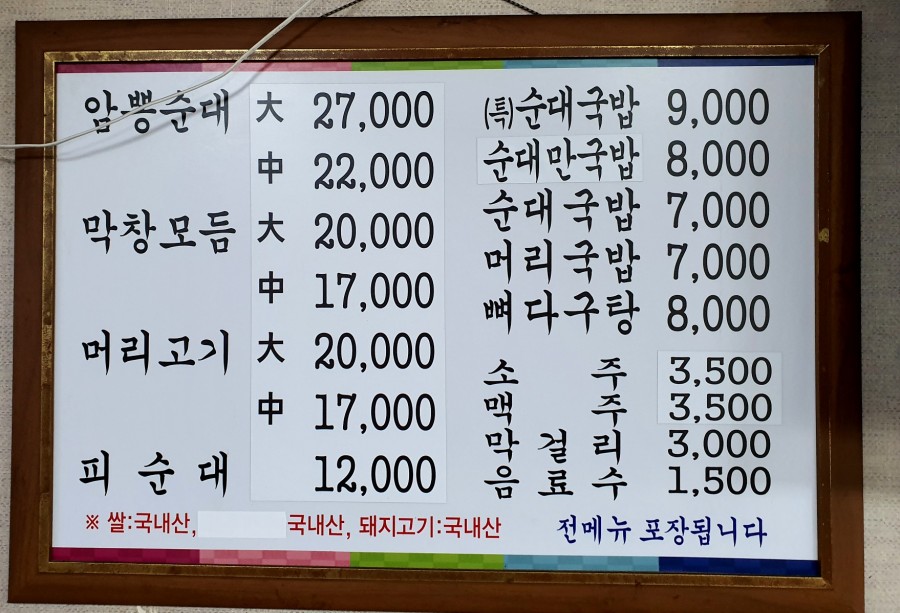 암뽕순대 大 27,000
中 22,000
막창모듬 大 20,000
中 17,000
머리고기 大 20,000
中 17,000
피순대 12,000
㈕순대국밥 9,000
순대만국밥 8,000
순대국밥 7,000
머리국밥 7,000
뼈다구탕 8,000
소주 3,500
맥주 3,500
막걸리 3,000
음료수 1,500
※ 쌀:국내산, 국내산, 돼지고기:국내산
전메뉴 포장됩니다